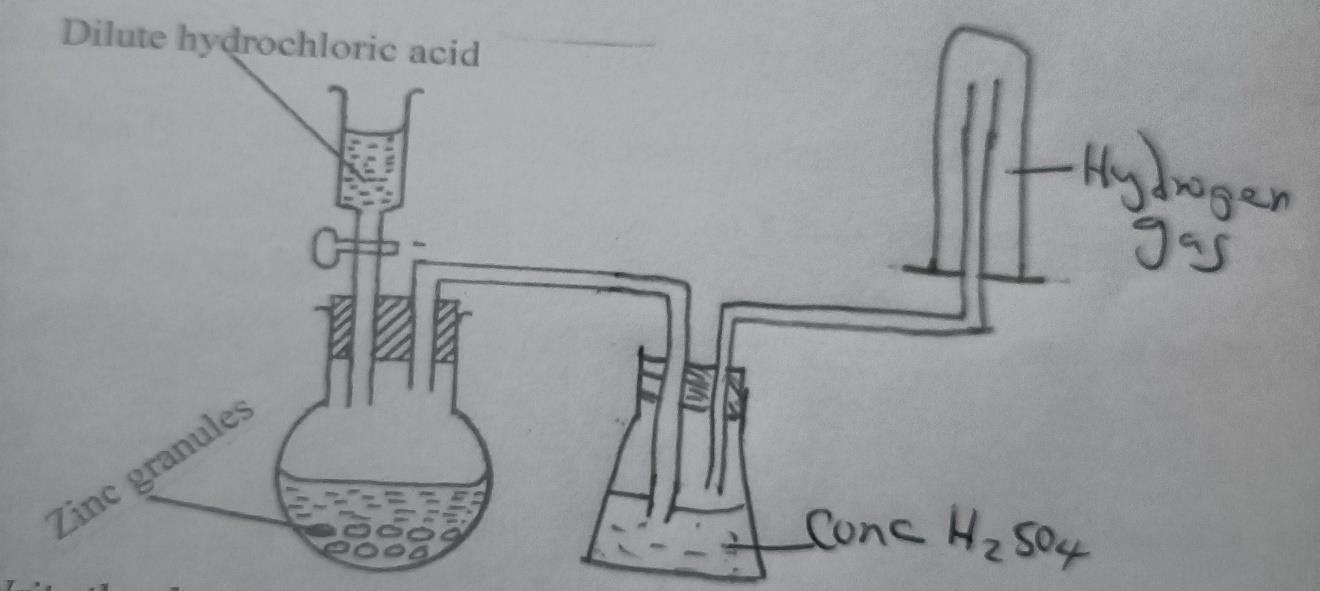 Dilute hydrochloric acid
Hydrogen
gas
Zinc granules
Conc H₂SO₄